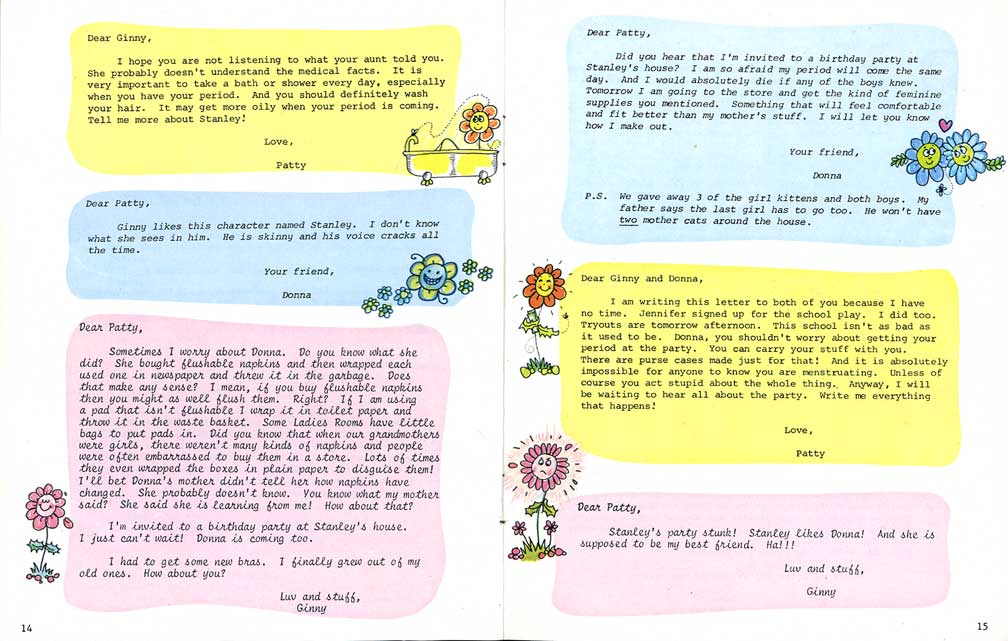 Dear Ginny,
I hope you are not listening to what your aunt told you.
She probably doesn't understand the medical facts. It is
very important to take a bath or shower every day, especially
when you have your period. And you should definitely wash
your hair. It may get more oily when your period is coming.
Tell me more about Stanley!
Love,
Patty
Dear Patty,
Ginny likes this character named Stanley. I don't know
what she sees in him. He is skinny and his voice cracks all
the time.
Your friend,
Donna
Dear Patty,
Sometimes I worry about Donna. Do you know what she
did? She bought flushable napkins and then wrapped each
used one in newspaper and threw it in the garbage. Does
that make any sense? I mean, if you buy flushable napkins
then you might as well flush them. Right? If I am using
a pad that isn't flushable I wrap it in toilet paper and
throw it in the waste basket. Some Ladies Rooms have little
bags to put pads in. Did you know that when our grandmothers
were girls, there weren't many kinds of napkins and people
were often embarrassed to buy them in a store. Lots of times
they even wrapped the boxes in plain paper to disguise them!
I'll bet Donna's mother didn't tell her how napkins have
changed. She probably doesn't know. You know what my mother
said? She said she is learning from me! How about that?
I'm invited to a birthday party at Stanley's house.
I just can't wait! Donna is coming too.
I had to get some new bras. I finally grew out of my
old ones. How about you?
Luv and stuff,
Ginny
14
Dear Patty,
Did you hear that I'm invited to a birthday party at
Stanley's house? I am so afraid my period will come the same
day. And I would absolutely die if any of the boys knew.
Tomorrow I am going to the store and get the kind of feminine
supplies you mentioned. Something that will feel comfortable
and fit better than my mother's stuff. I will let you know
how I make out.
Your friend,
Donna
P.S. We gave away 3 of the girl kittens and both boys. My
father says the last girl has to go too. He won't have
two mother cats around the house.
Dear Ginny and Donna,
I am writing this letter to both of you because I have
no time. Jennifer signed up for the school play. I did too.
Tryouts are tomorrow afternoon. This school isn't as bad as
it used to be. Donna, you shouldn't worry about getting your
period at the party. You can carry your stuff with you.
There are purse cases made just for that! And it is absolutely
impossible for anyone to know you are menstruating. Unless of
course you act stupid about the whole thing. Anyway, I will
be waiting to hear all about the party. Write me everything
that happens!
Love,
Patty
Dear Patty,
Stanley's party stunk! Stanley likes Donna! And she is
supposed to be my best friend. Ha!!!
Luv and stuff,
Ginny
15